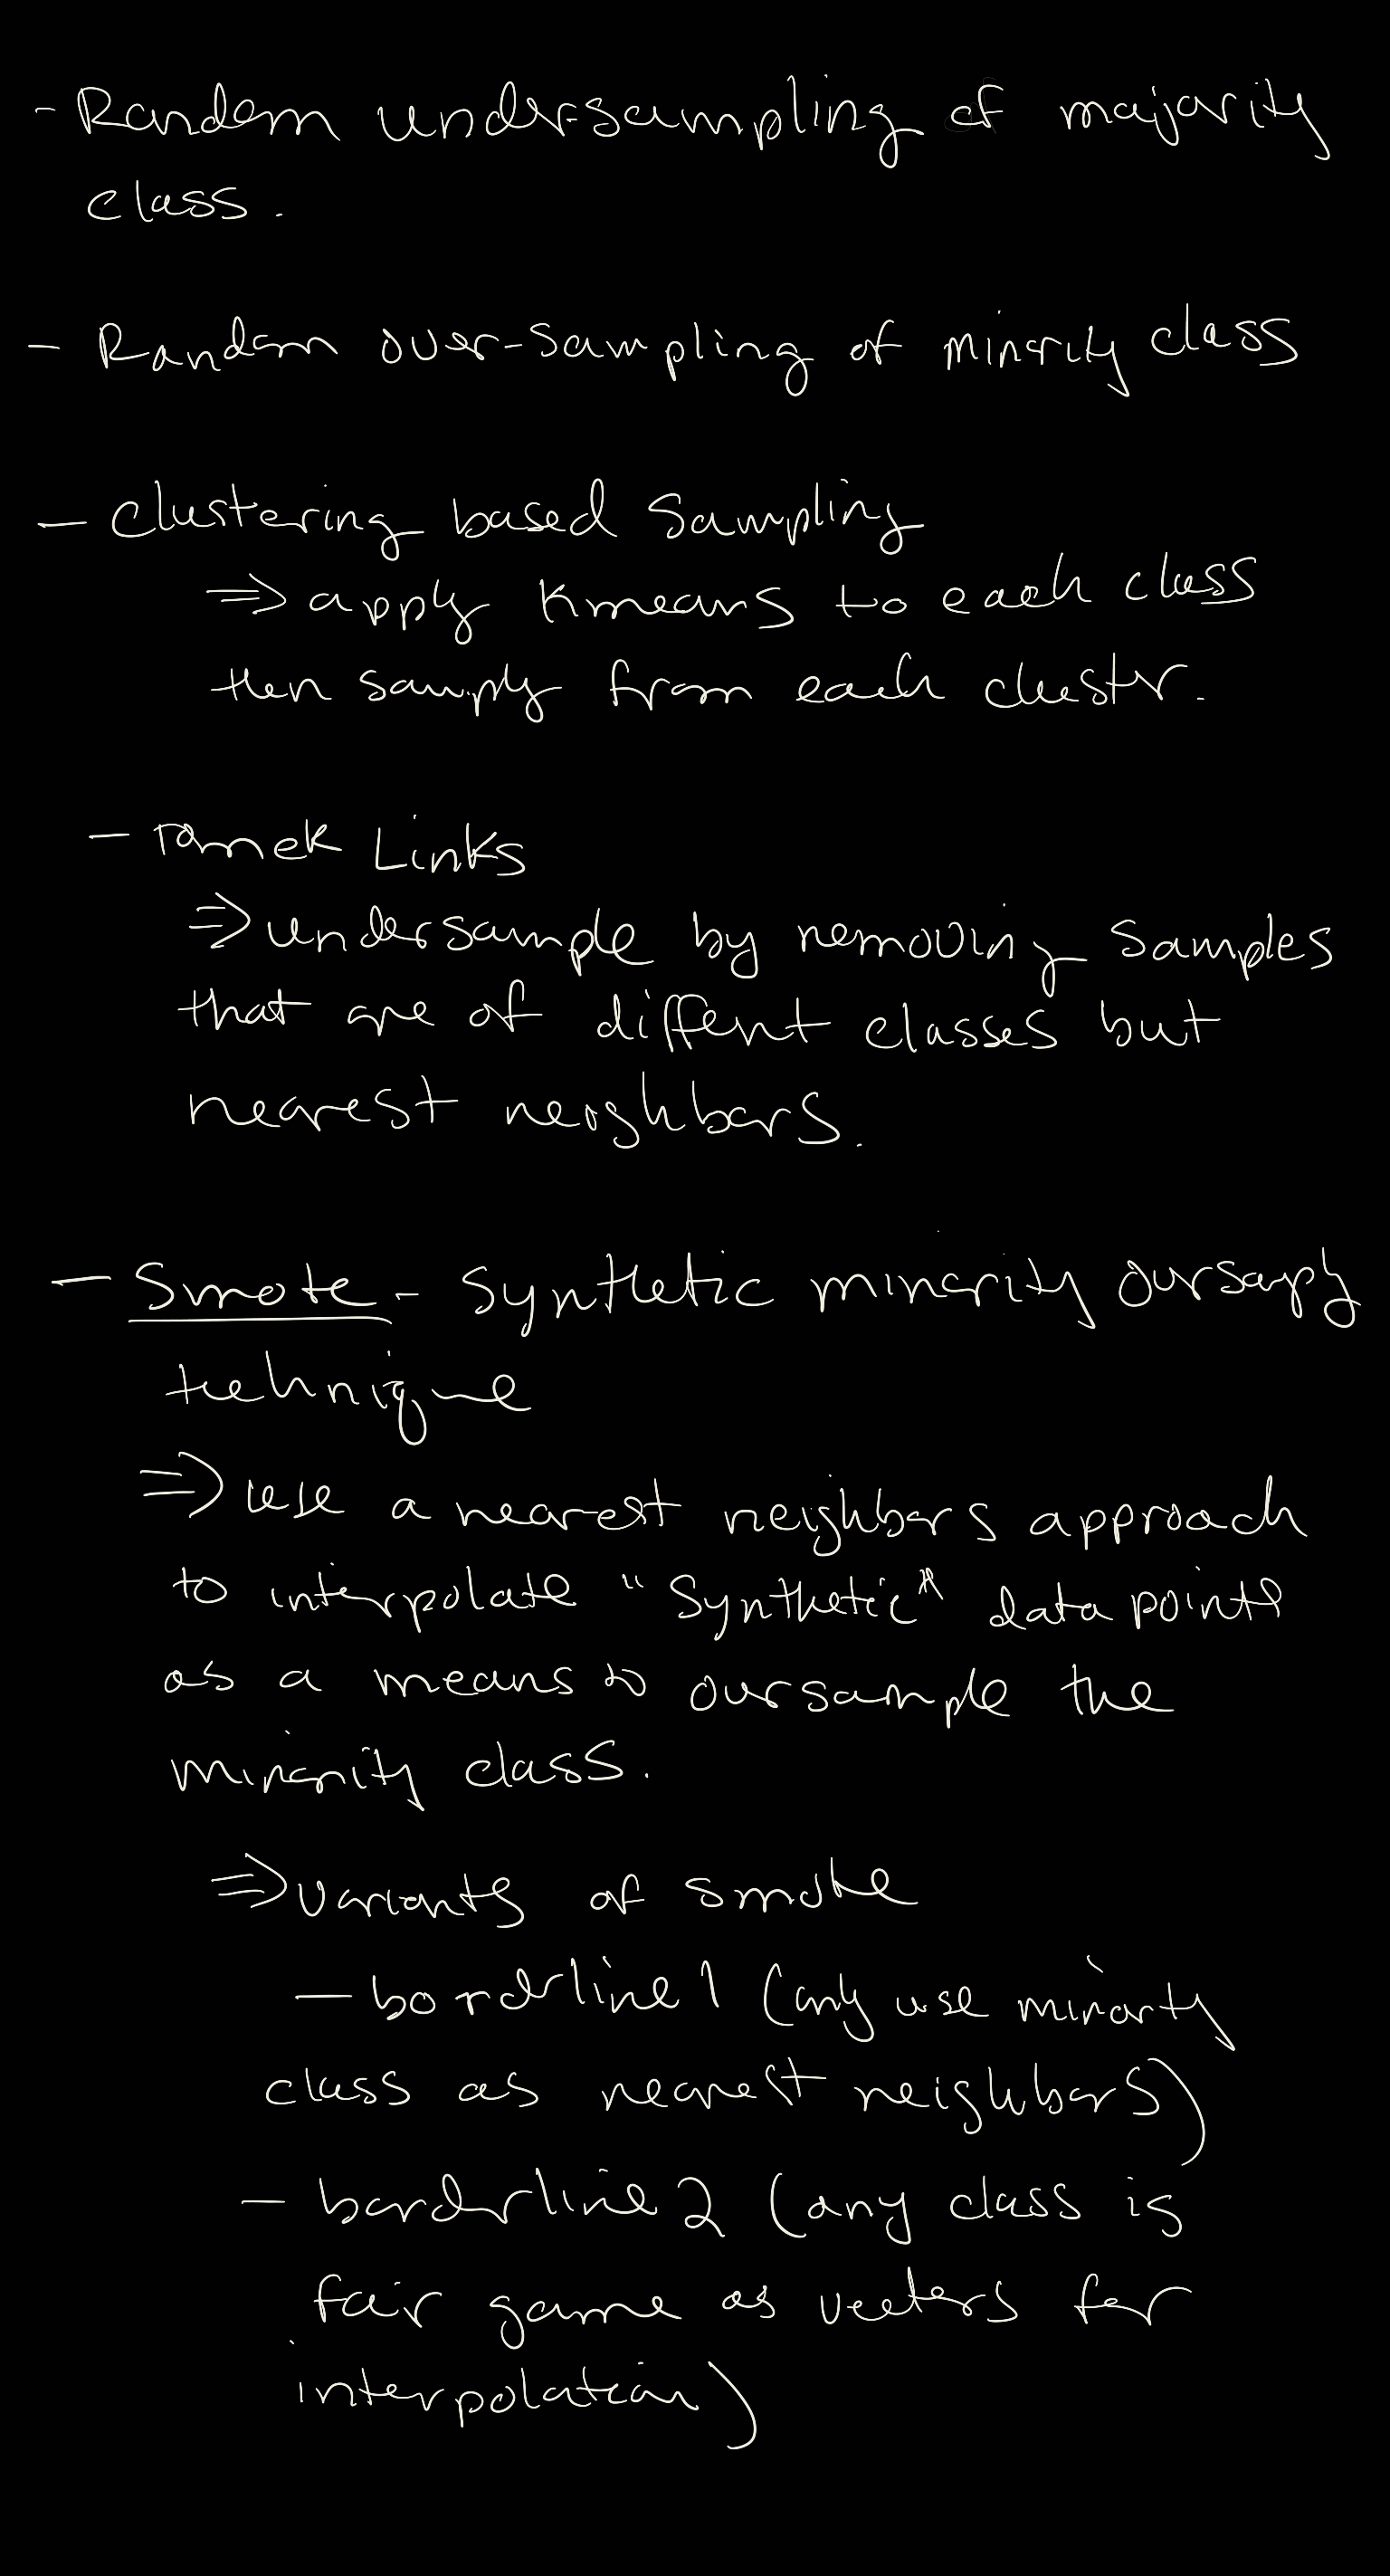 - Random undersampling of majority
class.
- Random over-sampling of minority class
- Clustering based sampling
=> apply Kmeans to each class
then sample from each cluster.
- Tomek Links
=> undersample by removing samples
that are of diffent classes but
nearest neighbors.
- Smote - Synthetic minority oursamply
technique
=> use a nearest neighbors approach
to interpolate "Synthetic" data points
as a means to oursample the
minority class.
=> variants of smote
- borderline 1 (only use minority
class as nearest neighbors)
- borderline 2 (any class is
fair game as vectors for
interpolation)